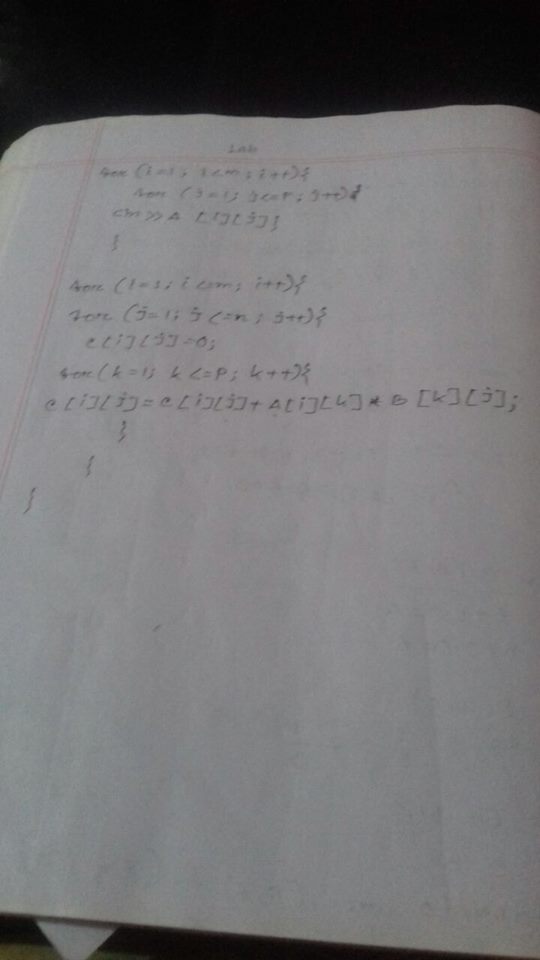 Lab
for (i=1; i<m; i++){
for (j=1; j<=P; j++){
cin>>A [i][j]}
}
for (i=1; i<=m; i++){
for (j=1; j<=n; j++){
c[i][j]=0;
for(k=1; k<=P; k++){
c[i][j]=c[i][j]+A[i][k]*B[k][j];
}
}
}